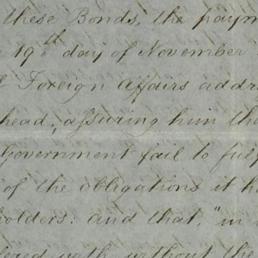 these Bonds, the paym
19th day of November
Foreign Affairs addre
head, assuring him tha
Government fail to fulf
of the obligations it h
holders: and that, "in
with without the